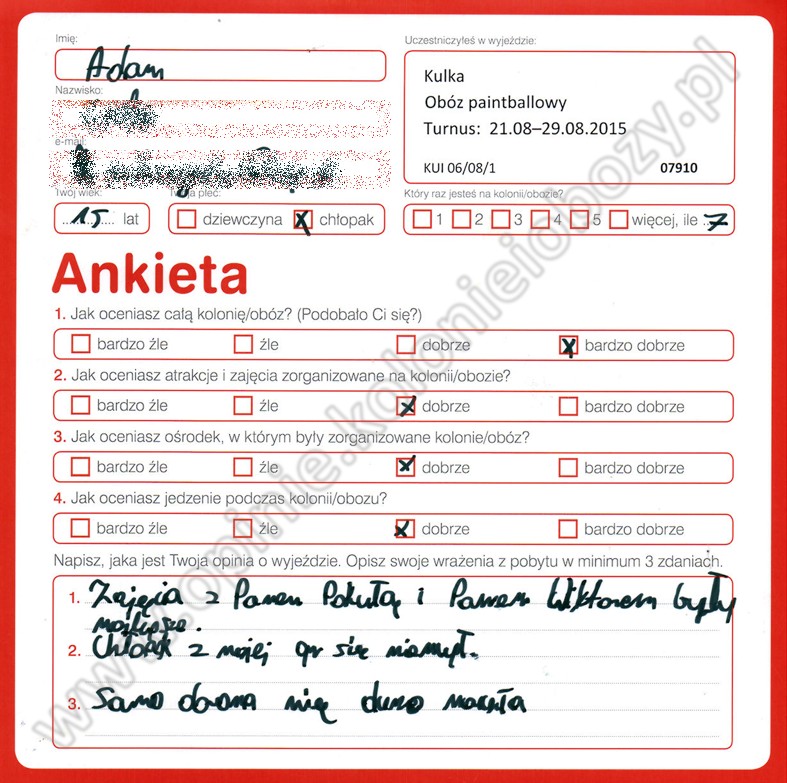 Imię:
Adam
Nazwisko:
e-mail:
Twój wiek:
15 lat
płeć:
dziewczyna chłopak
Uczestniczyłeś w wyjeździe:
Kulka
Obóz paintballowy
Turnus: 21.08–29.08.2015
KUI 06/08/1 07910
Który raz jesteś na kolonii/obozie?
1 2 3 4 5 więcej, ile 7
Ankieta
1. Jak oceniasz całą kolonię/obóz? (Podobało Ci się?)
bardzo źle źle dobrze bardzo dobrze
2. Jak oceniasz atrakcje i zajęcia zorganizowane na kolonii/obozie?
bardzo źle źle dobrze bardzo dobrze
3. Jak oceniasz ośrodek, w którym były zorganizowane kolonie/obóz?
bardzo źle źle dobrze bardzo dobrze
4. Jak oceniasz jedzenie podczas kolonii/obozu?
bardzo źle źle dobrze bardzo dobrze
Napisz, jaka jest Twoja opinia o wyjeździe. Opisz swoje wrażenia z pobytu w minimum 3 zdaniach.
1. Zajęcia z Panem Pokutą i Panem Wiktorem były
najlepsze.
2. Chłopak z mojej gr się niemył.
3. Samo obrona nię dużo
www.opinie.kolonieiobozy.pl